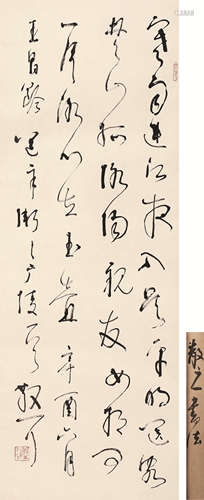 寒雨連江夜入吳平明送客
楚山孤洛陽親友如相問
一片冰心在玉壺辛酉六月
王昌齡送辛漸之广陵散耳
散之書法